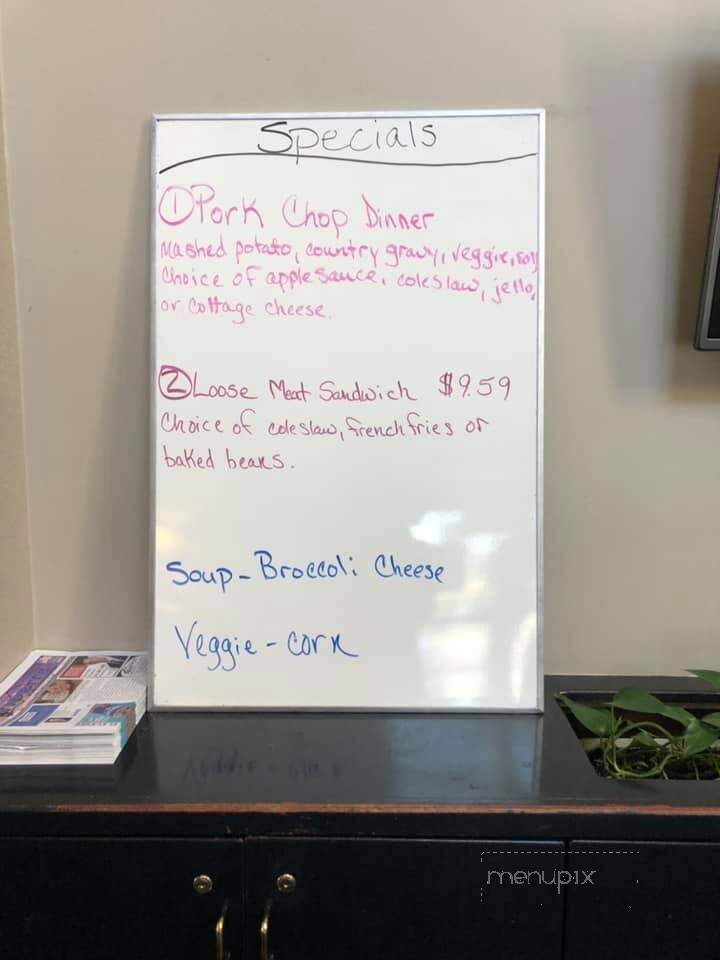 Specials
① Pork Chop Dinner
Mashed potato, country gravy, veggie,
Choice of applesauce, coleslaw, jello,
or cottage cheese.
② Loose Meat Sandwich $9.59
Choice of coleslaw, french fries or
baked beans.
Soup - Broccoli Cheese
Veggie - corn
menupix